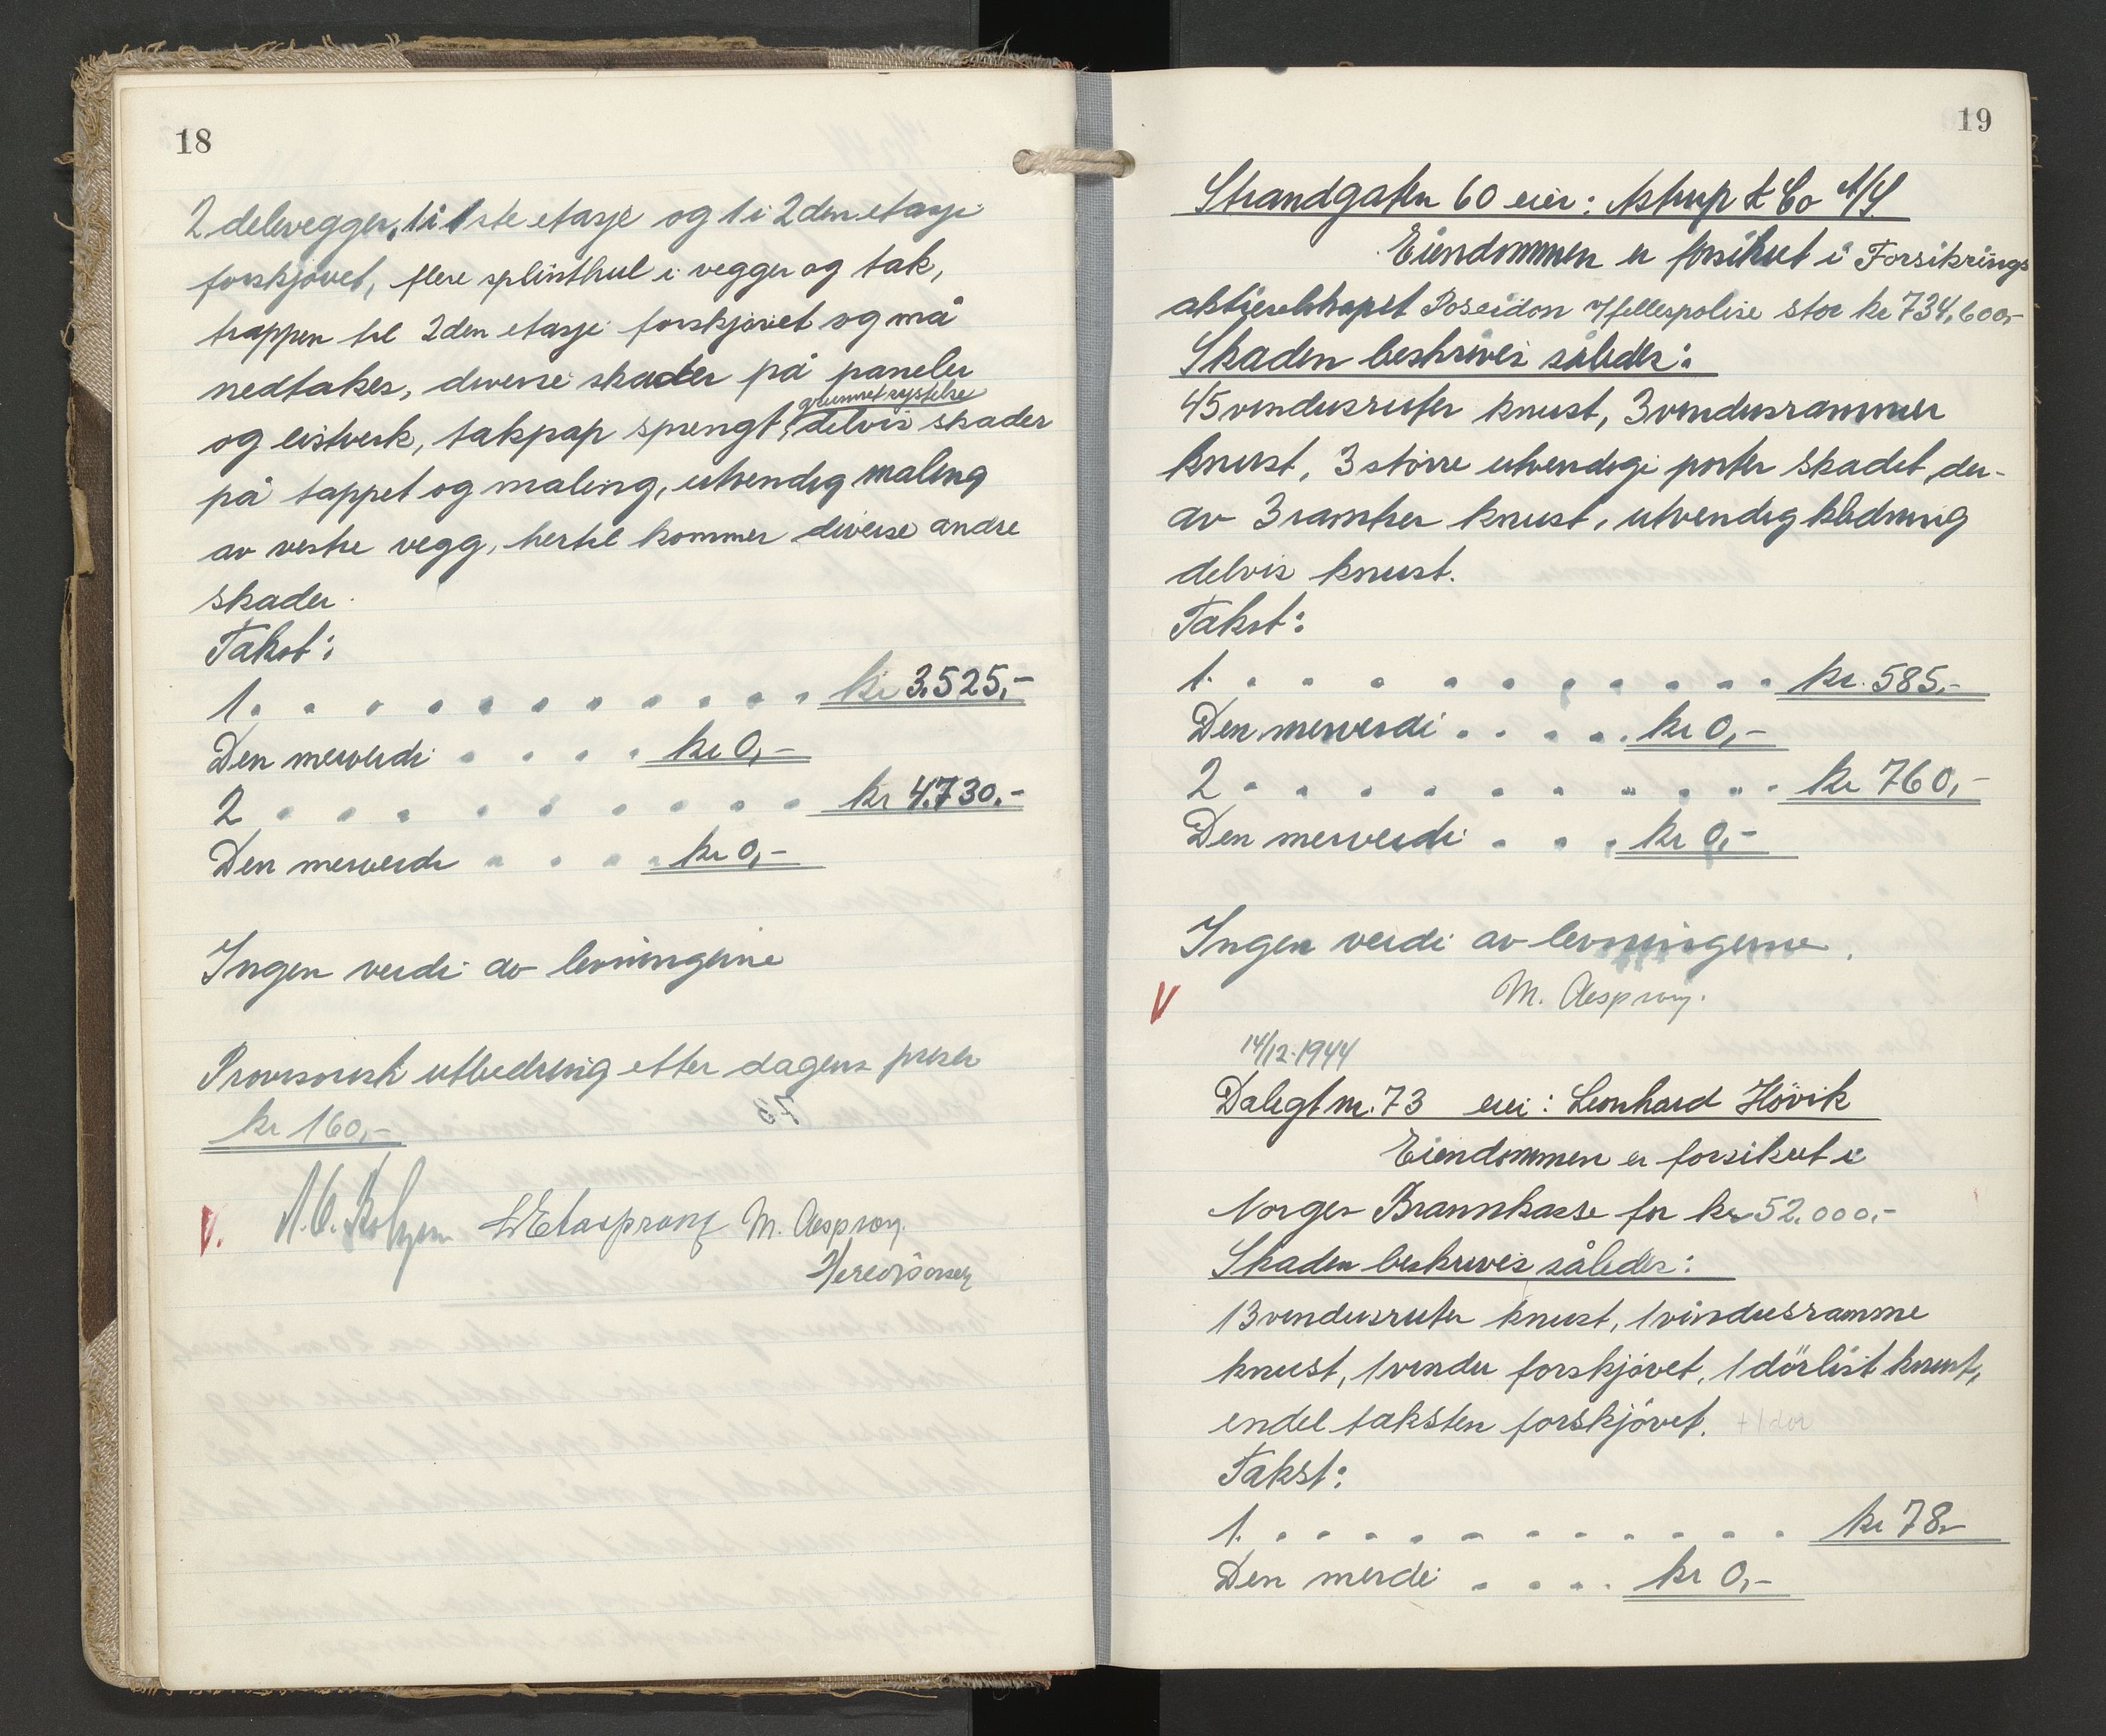 18
2 delevegger, 1 i 1ste etasje og 1 i 2den etasje
forskjøvet, flere splinthul i vegger og tak,
trappen til 2den etasje forskjøvet og må
nedtakes, diverse skader på paneler
grunnet rystelse
og listverk, takpap sprengt, delvis skader
på tappet og maling, utvendig maling
av vestre vegg, hertil kommer diverse andre
skader.
Takst:
1. . . . . . . . . . . kr 3.525,-
Den merverdi . . . . kr 0,-
2 . . . . . . . . . kr 4.730.-
Den merverdi . . . . kr 0,-
Ingen verdi av levningene
Provisorisk utbedring etter dagens priser
kr 160,-
73
V. M. Aesprong.
19
Strandgaten 60 eier: Astrup & Co A/S
Eiendommen er forsikret i Forsikrings
aktieselskapet Poseidon i/fellespolise stor kr 734,600,-
Skaden beskrives således:
45 vindusruter knust, 3 vindusrammer
knust, 3 större utvendige porter skadet, der-
av 3 ramtrer knust, utvendig kledning
delvis knust.
Takst:
1. . . . . . . . . . . kr. 585,-
Den merverdi . . . . . kr 0,-
2 . . . . . . . . . . kr 760,-
Den merverdi . . . kr 0,-
Ingen verdi av levningene.
V M. Aesprong.
14/12-1944
Dalegt nr. 73 eier: Leonhard Hövik
Eiendommen er forsikret i
Norges Brannkasse for kr 52.000,-
Skaden beskrives således:
13 vindusruter knust, 1 vindusramme
knust, 1 vindu forskjövet, 1 dörlist knust,
endel taksten forskjövet. + 1 dör
Takst:
1. . . . . . . . . . . kr 78,-
Den merdi . . . . kr 0,-